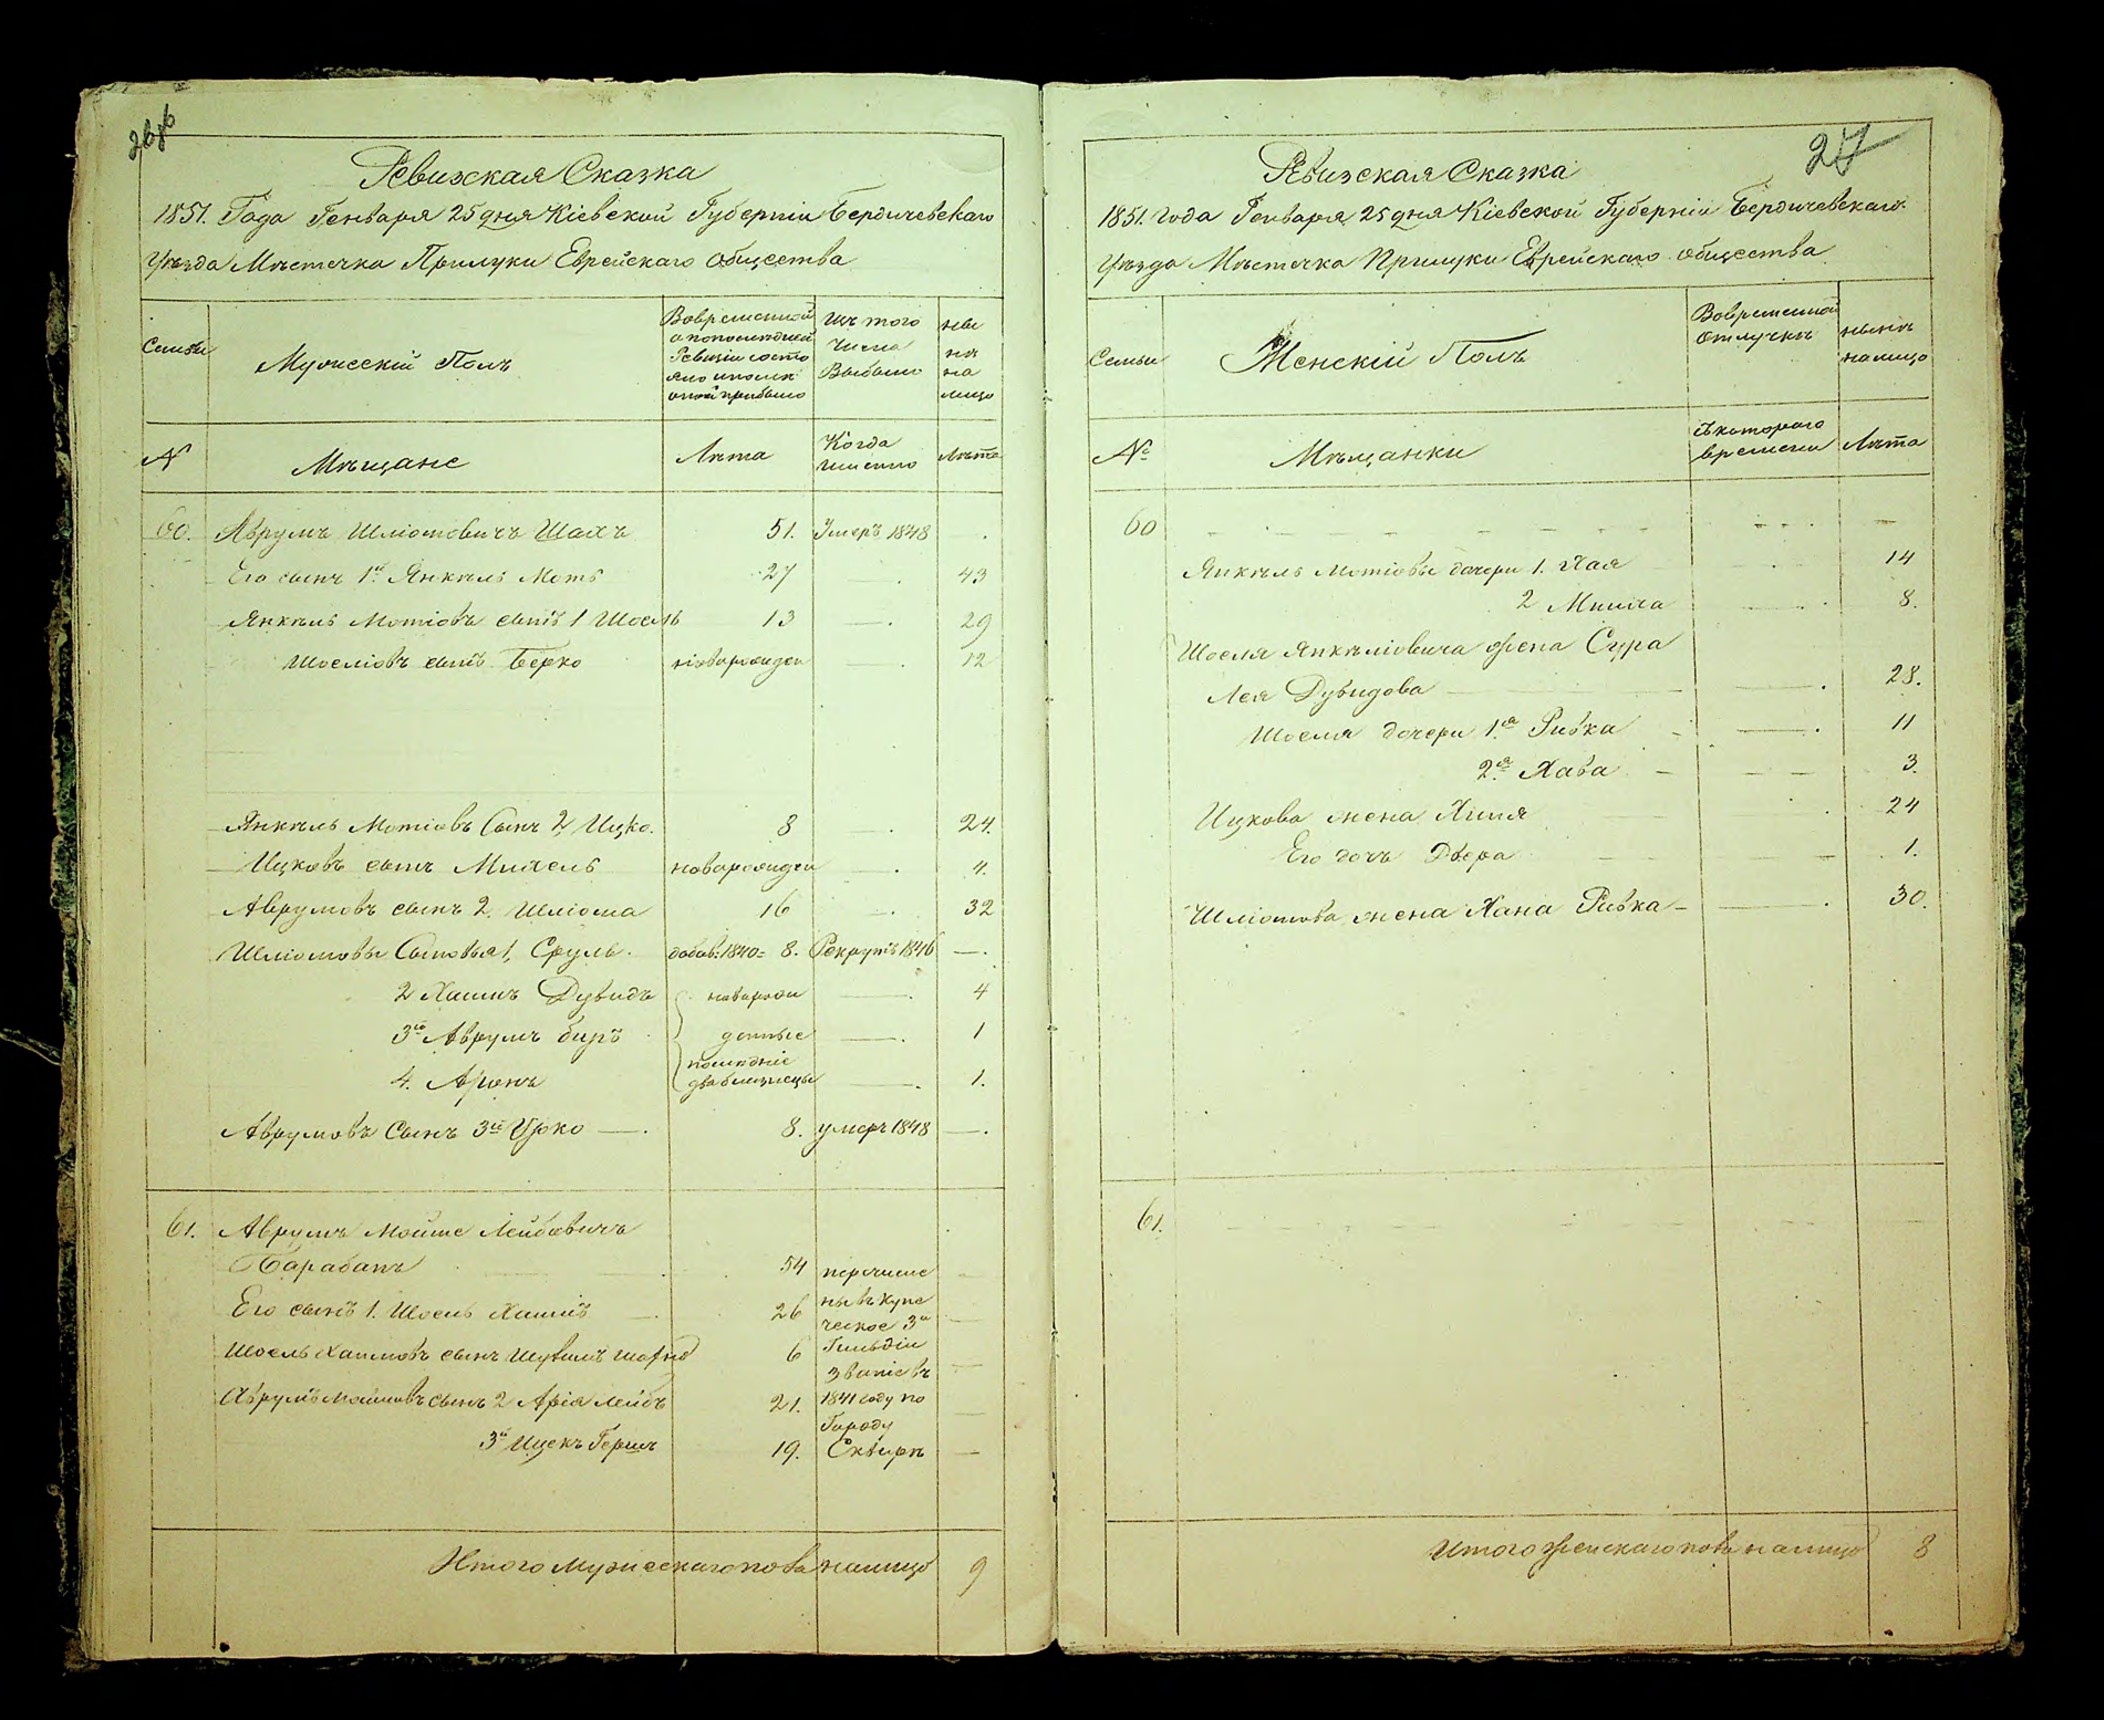 26
Ревизская Сказка
1851. Года Генваря 25 дня Кіевской Губерніи Бердичевскаго
Уѣзда Мѣстечка Прилуки Еврейскаго Общества
Семьи
Мужескій Полъ
Изъ того
числа
Выбыло
ны
нѣ
на
лицо
№
Мѣщане
Лѣта
Когда
именно
Лѣта
60. Аврумъ Шліомовичъ Шахъ 51. Умеръ 1848
Его сынъ 1й Янкель Моть 27 43
Янкель Мотіовъ сынъ 1 Шоель 13 29
Шоеліовъ сынъ Берко новорожден 12
Янкель Мотіовъ Сынъ 2 Ицко. 8 24.
Ицковъ сынъ Михель новорожден 4.
Аврумовъ сынъ 2. Шліома 16 32
Шліомовы Сыновья 1, Сруль. добав: 1840 = 8. Рекрутъ 1846 —.
2 Хаимъ Дувидъ новорож 4
3й Аврумъ беръ денные 1
последніе
4. Аронъ два близнецы 1.
Аврумовъ Сынъ 3й Урко —. 8. умеръ 1848 —.
61. Аврумъ Мойше Лейбовичъ
Барабанъ 54 перечисле
Его сынъ 1. Шоель Хаимъ 26 ны въ купе
ческое 3й
Шоель Хаимовъ сынъ 6 Гильдіи
званіе въ
Аврумъ Мошковъ сынъ 2 Арія Лейбъ 21. 1841 году по
Городу
3й Ицекъ Гершъ 19. Сквирѣ —
Итого Мужескаго пола налицо 9
27
Ревизская Сказка
1851. Года Генваря 25 дня Кіевской Губерніи Бердичевскаго
Уѣзда Мѣстечка Прилуки Еврейскаго Общества
Семьи
Женскій Полъ
Вовременной
отлучкѣ
нынѣ
налицо
№
Мѣщанки
съ котораго
времени
Лѣта
60
Янкель Мотіовы дочери 1. Хая 14
2 8.
Шоеля Янкеліовича жена Сура
Лея Дувидова 28.
Шоеля дочери 1.я Ривка 11
2.я Хава 3.
Ицкова жена 24
Его дочь Двера 1.
Шліомова жена Хана Ривка 30.
61.
Итого женскаго пола налицо 8